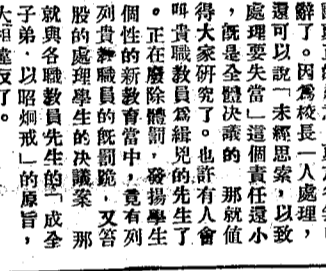 辭了。因爲校長一人處理，
還可以說「未經思索，以致
處理要失當」這個責任還小
，旣是全體決議的　那就値
得大家研究了。也許有人會
叫貴職教員爲緝兇的先生了
。正在廢除體罰，發揚學生
個性的新教育當中，竟有列
列貴教職員的旣罰跪，又笞
股的處理學生的決議案　那
就與各職教員先生的「成全
子弟，以昭炯戒」的原旨，
大相逕反了。